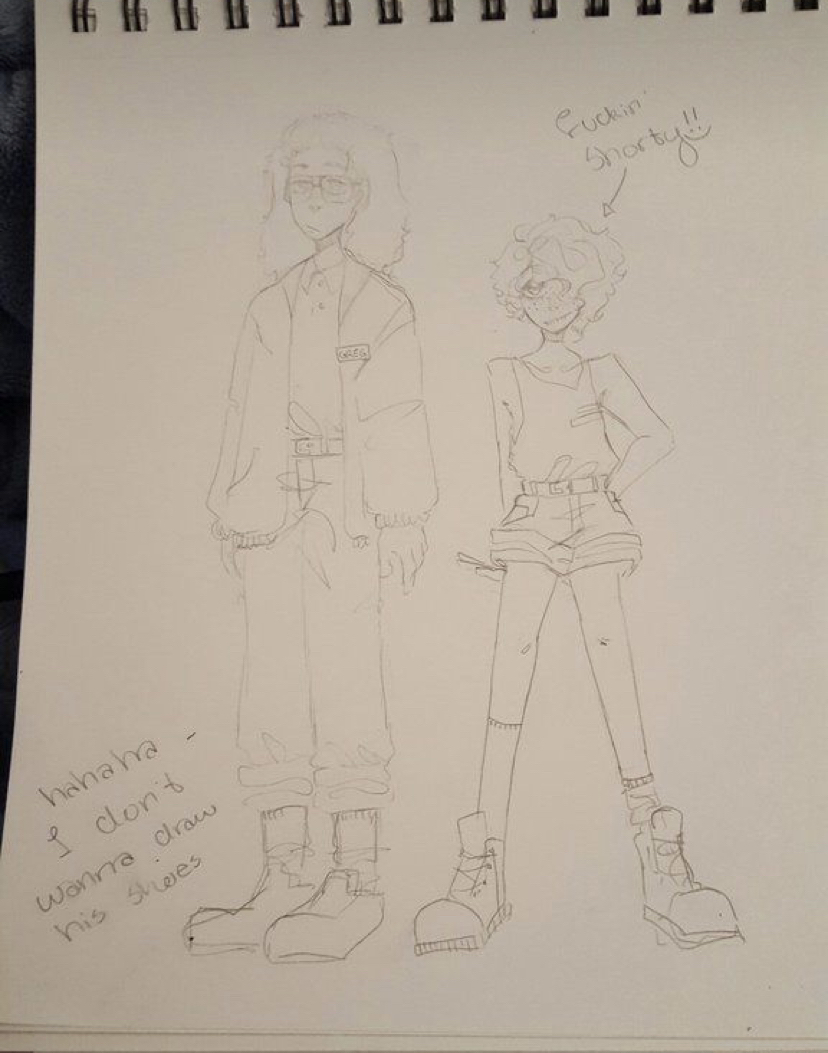 fuckin'
shorty!!
GREG
hahaha -
I don't
wanna draw
his shoes